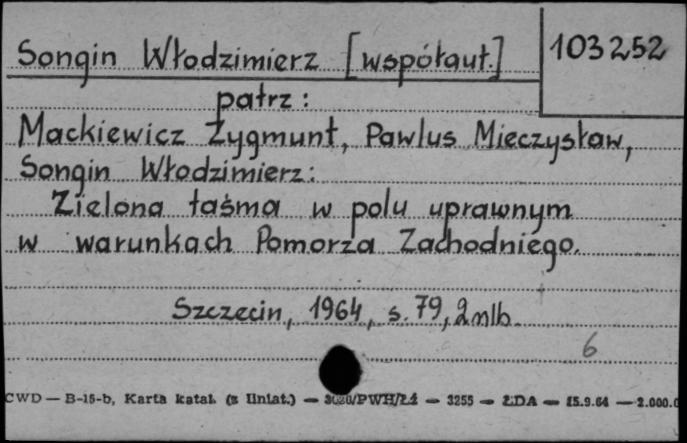 Songin Włodzimierz [współaut.] 103252
patrz:
Mackiewicz Zygmunt, Pawlus Mieczysław,
Songin Włodzimierz:
Zielona taśma w polu uprawnym
w warunkach Pomorza Zachodniego.
Szczecin, 1964, s. 79, 2 nlb.
6
CWD — B-15-b, Karta katal. (z liniat.) — /PWH/Ł4 — 3255 — ŁDA — 15.9.64 — 2.000.0